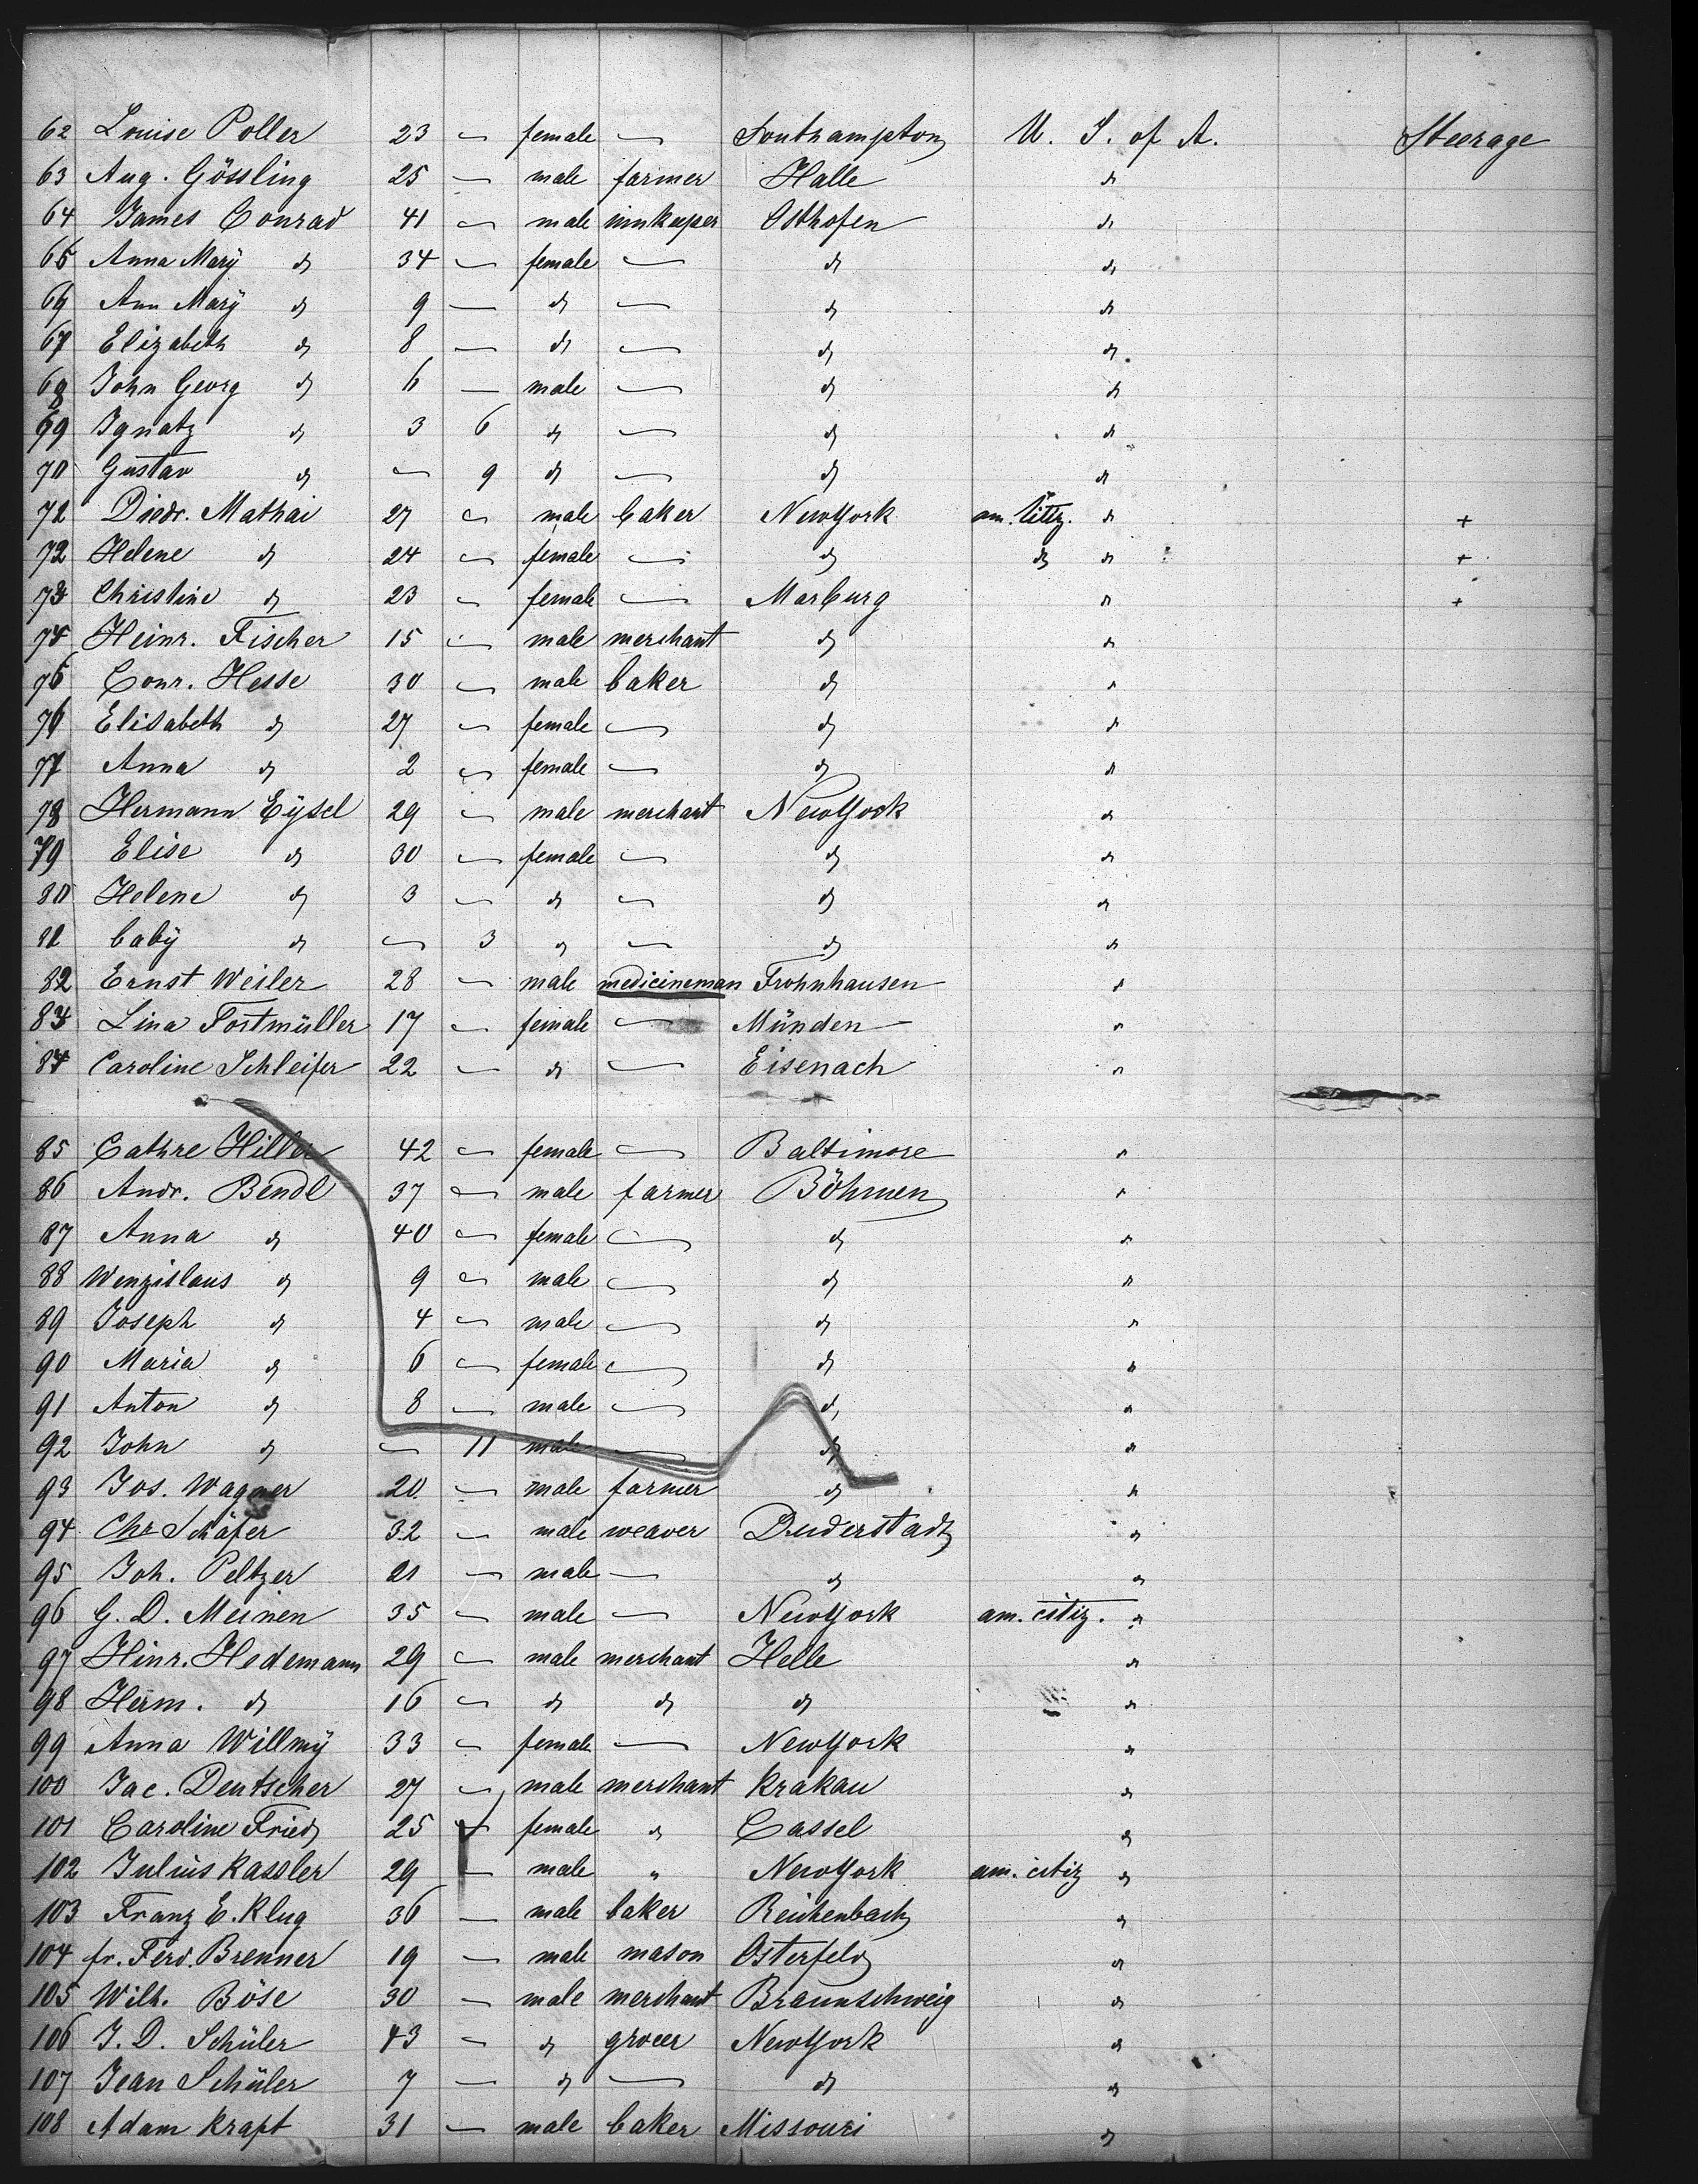 62 Louise Poller 23 — female — Southampton U. S. of A. Steerage
63 Aug. Gössling 25 — male farmer Halle do
64 James Conrad 41 — male innkeeper Osthofen do
65 Anna Marÿ do 34 — female — do do
66 Ann Marÿ do 9 — do — do do
67 Elizabeth do 8 — do — do do
68 John Georg do 6 — male — do do
69 Ignatz do 3 6 do — do do
70 Gustav do — 9 do — do do
71 Diedr. Mathai 27 — male baker NewYork am. citiz. do +
72 Helene do 24 — female — do do do +
73 Christine do 23 — female — Marburg do +
74 Heinr. Fischer 15 — male merchant do do
75 Conr. Hesse 30 — male baker do do
76 Elisabeth do 27 — female — do do
77 Anna do 2 — female — do do
78 Hermann Eÿsel 29 — male merchant NewYork do
79 Elise do 30 — female — do do
80 Helene do 3 — do — do do
81 baby do — 3 do — do do
82 Ernst Weiler 28 — male medicineman Frohnhausen do
83 Lina Fostmüller 17 — female — Münden do
84 Caroline Schleifer 22 — do — Eisenach do
85 Cathre Hiller 42 — female — Baltimore do
86 Andr. Bendl 37 — male farmer Böhmen do
87 Anna do 40 — female — do do
88 Wenzislaus do 9 — male — do do
89 Joseph do 4 — male — do do
90 Maria do 6 — female — do do
91 Anton do 8 — male — do do
92 John do — 11 male — do do
93 Jos. Wagner 20 — male farmer do do
94 Chr Schäfer 32 — male weaver Duderstadt do
95 Joh. Peltzer 21 — male — do do
96 G. D. Meinen 35 — male — NewYork am. citiz. do
97 Hinr. Hedemann 29 — male merchant Helle do
98 Herm. do 16 — do do do do
99 Anna Willmÿ 33 — female — NewYork do
100 Jac. Deutscher 27 — male merchant Krakau do
101 Caroline Fried 25 — female do Cassel do
102 Julius Kassler 29 — male " NewYork am. citiz do
103 Franz E. Klug 36 — male baker Reichenbach do
104 fr. Ferd. Brenner 19 — male mason Osterfeld do
105 Wilh. Böse 30 — male merchant Braunschweig do
106 J. D. Schüler 43 — do grocer NewYork do
107 Jean Schüler 7 — do — do do
108 Adam Kraft 31 — male baker Missouri do